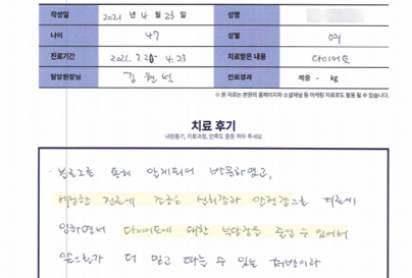 작성일 2021 년 4 월 23 일 성명
나이 47 성별 여
진료기간 2021. 2.20 - 4.23 치료받은 내용 다이어트
담당원장님 김현석 진료결과 체중 - kg
※ 본 자료는 본원의 홈페이지와 소셜채널 등 마케팅 자료로도 활용 될 수 있습니다.
치료 후기
내원동기, 치료과정, 만족도 등을 적어 주세요
· 블로그를 통해 알게되어 방문하였고,
세심한 진료에 조금은 신뢰감과 안정감으로 치료에
임하면서 다이어트에 대한 부담감을 줄일 수 있어서
앞으로가 더 믿고 다닐 수 있는 처방이라